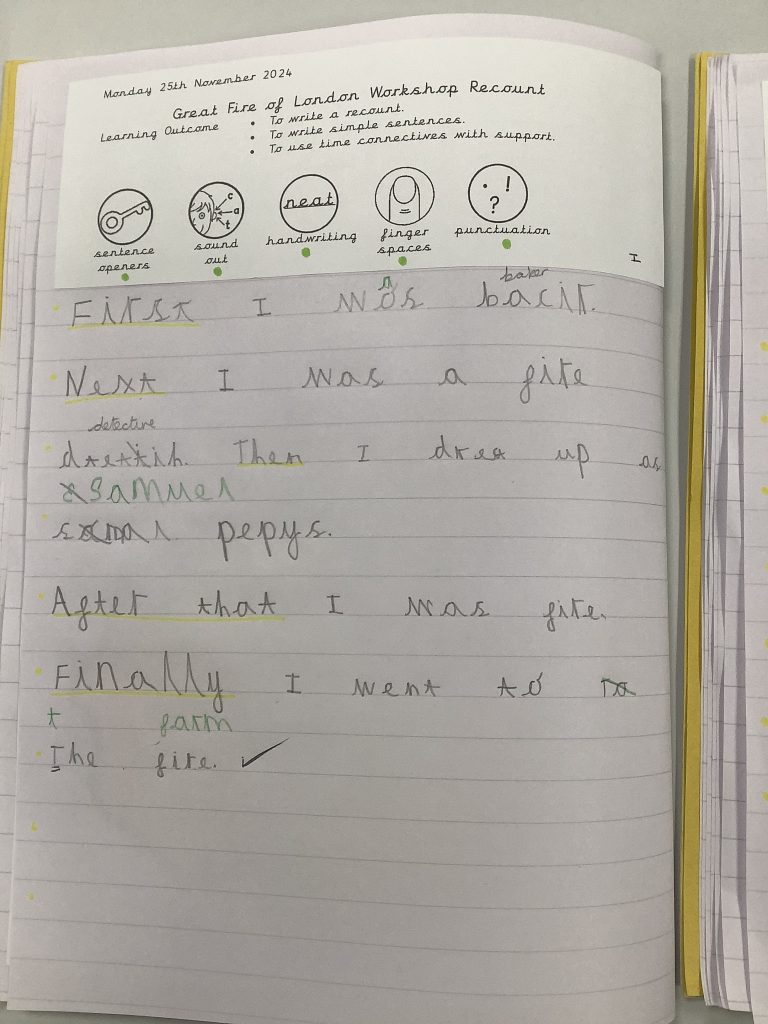 Monday 25th November 2024
Great Fire of London Workshop Recount
Learning Outcome • To write a recount.
• To write simple sentences.
• To use time connectives with support.
c
a
t
neat
. ! ?
sentence openers
sound out
handwriting
finger spaces
punctuation
I
a baker
First I wos bacir.
Next I was a fire
detective
Then I dret up as
Samuel
pepys.
After that I was fire.
Finally I went to
t farm
The fire. ✓